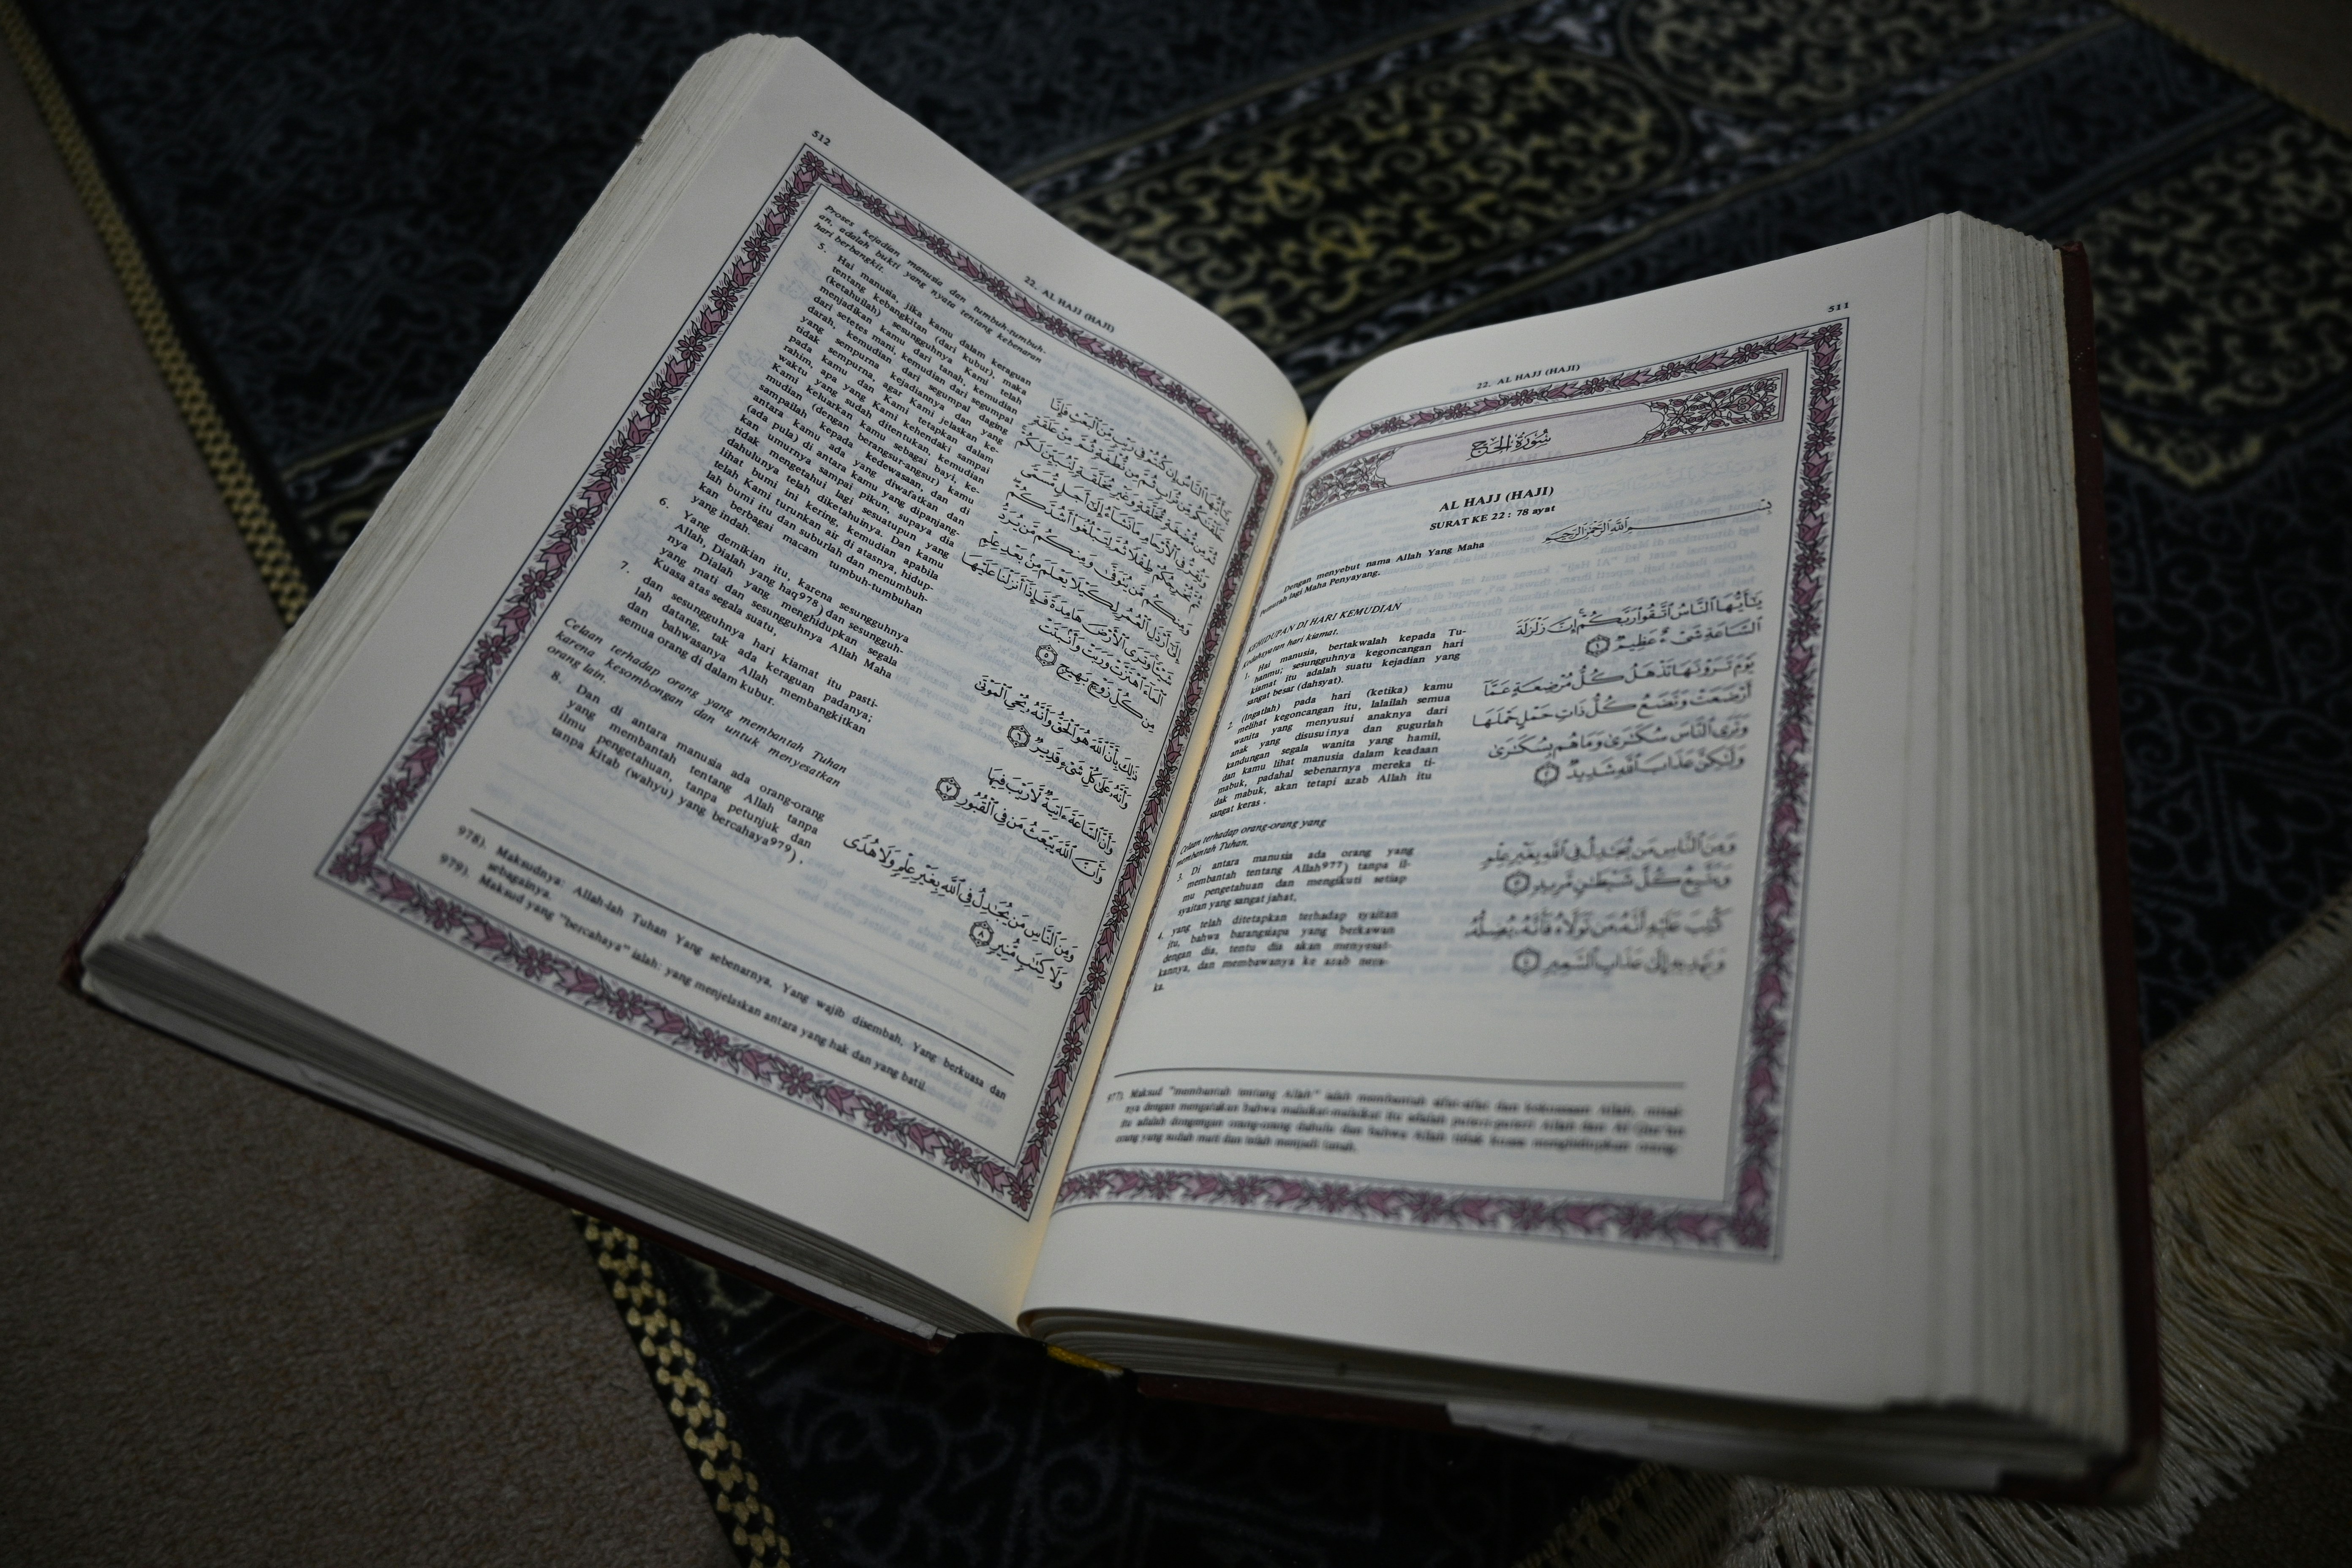 511
22. AL HAJJ (HAJI)
سُورَةُ الْحَجِّ
AL HAJJ (HAJI)
SURAT KE 22 : 78 ayat
بِسْمِ اللَّهِ الرَّحْمَٰنِ الرَّحِيمِ
Dengan menyebut nama Allah Yang Maha
Pemurah lagi Maha Penyayang.
KEHIDUPAN DI HARI KEMUDIAN
Kedahsyatan hari kiamat.
1. Hai manusia, bertakwalah kepada Tu-
hanmu; sesungguhnya kegoncangan hari
kiamat itu adalah suatu kejadian yang
sangat besar (dahsyat).
2. (Ingatlah) pada hari (ketika) kamu
melihat kegoncangan itu, lalailah semua
wanita yang menyusui anaknya dari
anak yang disusuinya dan gugurlah
kandungan segala wanita yang hamil,
dan kamu lihat manusia dalam keadaan
mabuk, padahal sebenarnya mereka ti-
dak mabuk, akan tetapi azab Allah itu
sangat keras .
Celaan terhadap orang-orang yang
membantah Tuhan.
3. Di antara manusia ada orang yang
membantah tentang Allah977) tanpa il-
mu pengetahuan dan mengikuti setiap
syaitan yang sangat jahat,
4. yang telah ditetapkan terhadap syaitan
itu, bahwa barangsiapa yang berkawan
dengan dia, tentu dia akan menyesat-
kannya, dan membawanya ke azab nera-
ka.
يَٰٓأَيُّهَا ٱلنَّاسُ ٱتَّقُوا۟ رَبَّكُمْ إِنَّ زَلْزَلَةَ
ٱلسَّاعَةِ شَىْءٌ عَظِيمٌ ١
يَوْمَ تَرَوْنَهَا تَذْهَلُ كُلُّ مُرْضِعَةٍ عَمَّآ
أَرْضَعَتْ وَتَضَعُ كُلُّ ذَاتِ حَمْلٍ حَمْلَهَا
وَتَرَى ٱلنَّاسَ سُكَٰرَىٰ وَمَا هُم بِسُكَٰرَىٰ
وَلَٰكِنَّ عَذَابَ ٱللَّهِ شَدِيدٌ ٢
وَمِنَ ٱلنَّاسِ مَن يُجَٰدِلُ فِى ٱللَّهِ بِغَيْرِ عِلْمٍ
وَيَتَّبِعُ كُلَّ شَيْطَٰنٍ مَّرِيدٍ ٣
كُتِبَ عَلَيْهِ أَنَّهُۥ مَن تَوَلَّاهُ فَأَنَّهُۥ يُضِلُّهُۥ
وَيَهْدِيهِ إِلَىٰ عَذَابِ ٱلسَّعِيرِ ٤
977). Maksud "membantah tentang Allah" ialah membantah sifat-sifat dan kekuasaan Allah, misal-
nya dengan mengatakan bahwa malaikat-malaikat itu adalah puteri-puteri Allah dan Al Qur'an
itu adalah dongengan orang-orang dahulu dan bahwa Allah tidak kuasa menghidupkan orang-
orang yang sudah mati dan telah menjadi tanah.
512
22. AL HAJJ (HAJI)
Proses kejadian manusia dan tumbuh-tumbuh-
an, adalah bukti yang nyata tentang kebenaran
hari berbangkit.
5. Hai manusia, jika kamu dalam keraguan
tentang kebangkitan (dari kubur), maka
(ketahuilah) sesungguhnya Kami telah
menjadikan kamu dari tanah, kemudian
dari setetes mani, kemudian dari segumpal
darah, kemudian dari segumpal daging
yang sempurna kejadiannya dan yang
tidak sempurna, agar Kami jelaskan ke-
pada kamu dan Kami tetapkan dalam
rahim, apa yang Kami kehendaki sampai
waktu yang sudah ditentukan, kemudian
Kami keluarkan kamu sebagai bayi, ke-
mudian (dengan berangsur-angsur) kamu
sampailah kepada kedewasaan, dan di
antara kamu ada yang diwafatkan dan
(ada pula) di antara kamu yang dipanjang-
kan umurnya sampai pikun, supaya dia
tidak mengetahui lagi sesuatupun yang
dahulunya telah diketahuinya. Dan kamu
lihat bumi ini kering, kemudian apabila
telah Kami turunkan air di atasnya, hidup-
lah bumi itu dan suburlah dan menumbuh-
kan berbagai macam tumbuh-tumbuhan
yang indah.
6. Yang demikian itu, karena sesungguhnya
Allah, Dialah yang haq978) dan sesungguh-
nya Dialah yang menghidupkan segala
yang mati dan sesungguhnya Allah Maha
Kuasa atas segala suatu,
7. dan sesungguhnya hari kiamat itu pasti-
lah datang, tak ada keraguan padanya;
dan bahwasanya Allah membangkitkan
semua orang di dalam kubur.
Celaan terhadap orang yang membantah Tuhan
karena kesombongan dan untuk menyesatkan
orang lain.
8. Dan di antara manusia ada orang-orang
yang membantah tentang Allah tanpa
ilmu pengetahuan, tanpa petunjuk dan
tanpa kitab (wahyu) yang bercahaya979).
يَٰٓأَيُّهَا ٱلنَّاسُ إِن كُنتُمْ فِى رَيْبٍ مِّنَ ٱلْبَعْثِ فَإِنَّا
خَلَقْنَٰكُم مِّن تُرَابٍ ثُمَّ مِن نُّطْفَةٍ ثُمَّ مِنْ عَلَقَةٍ
ثُمَّ مِن مُّضْغَةٍ مُّخَلَّقَةٍ وَغَيْرِ مُخَلَّقَةٍ لِّنُبَيِّنَ لَكُمْ
وَنُقِرُّ فِى ٱلْأَرْحَامِ مَا نَشَآءُ إِلَىٰٓ أَجَلٍ مُّسَمًّى
ثُمَّ نُخْرِجُكُمْ طِفْلًا ثُمَّ لِتَبْلُغُوٓا۟ أَشُدَّكُمْ
وَمِنكُم مَّن يُتَوَفَّىٰ وَمِنكُم مَّن يُرَدُّ
إِلَىٰٓ أَرْذَلِ ٱلْعُمُرِ لِكَيْلَا يَعْلَمَ مِنۢ بَعْدِ عِلْمٍ
شَيْـًٔا وَتَرَى ٱلْأَرْضَ هَامِدَةً فَإِذَآ أَنزَلْنَا عَلَيْهَا
ٱلْمَآءَ ٱهْتَزَّتْ وَرَبَتْ وَأَنۢبَتَتْ
مِن كُلِّ زَوْجٍۭ بَهِيجٍ ٥
ذَٰلِكَ بِأَنَّ ٱللَّهَ هُوَ ٱلْحَقُّ وَأَنَّهُۥ يُحْىِ ٱلْمَوْتَىٰ
وَأَنَّهُۥ عَلَىٰ كُلِّ شَىْءٍ قَدِيرٌ ٦
وَأَنَّ ٱلسَّاعَةَ ءَاتِيَةٌ لَّا رَيْبَ فِيهَا
وَأَنَّ ٱللَّهَ يَبْعَثُ مَن فِى ٱلْقُبُورِ ٧
وَمِنَ ٱلنَّاسِ مَن يُجَٰدِلُ فِى ٱللَّهِ بِغَيْرِ عِلْمٍ وَلَا هُدًى
وَلَا كِتَٰبٍ مُّنِيرٍ ٨
978). Maksudnya: Allah-lah Tuhan Yang sebenarnya, Yang wajib disembah, Yang berkuasa dan
sebagainya.
979). Maksud yang "bercahaya" ialah: yang menjelaskan antara yang hak dan yang batil.